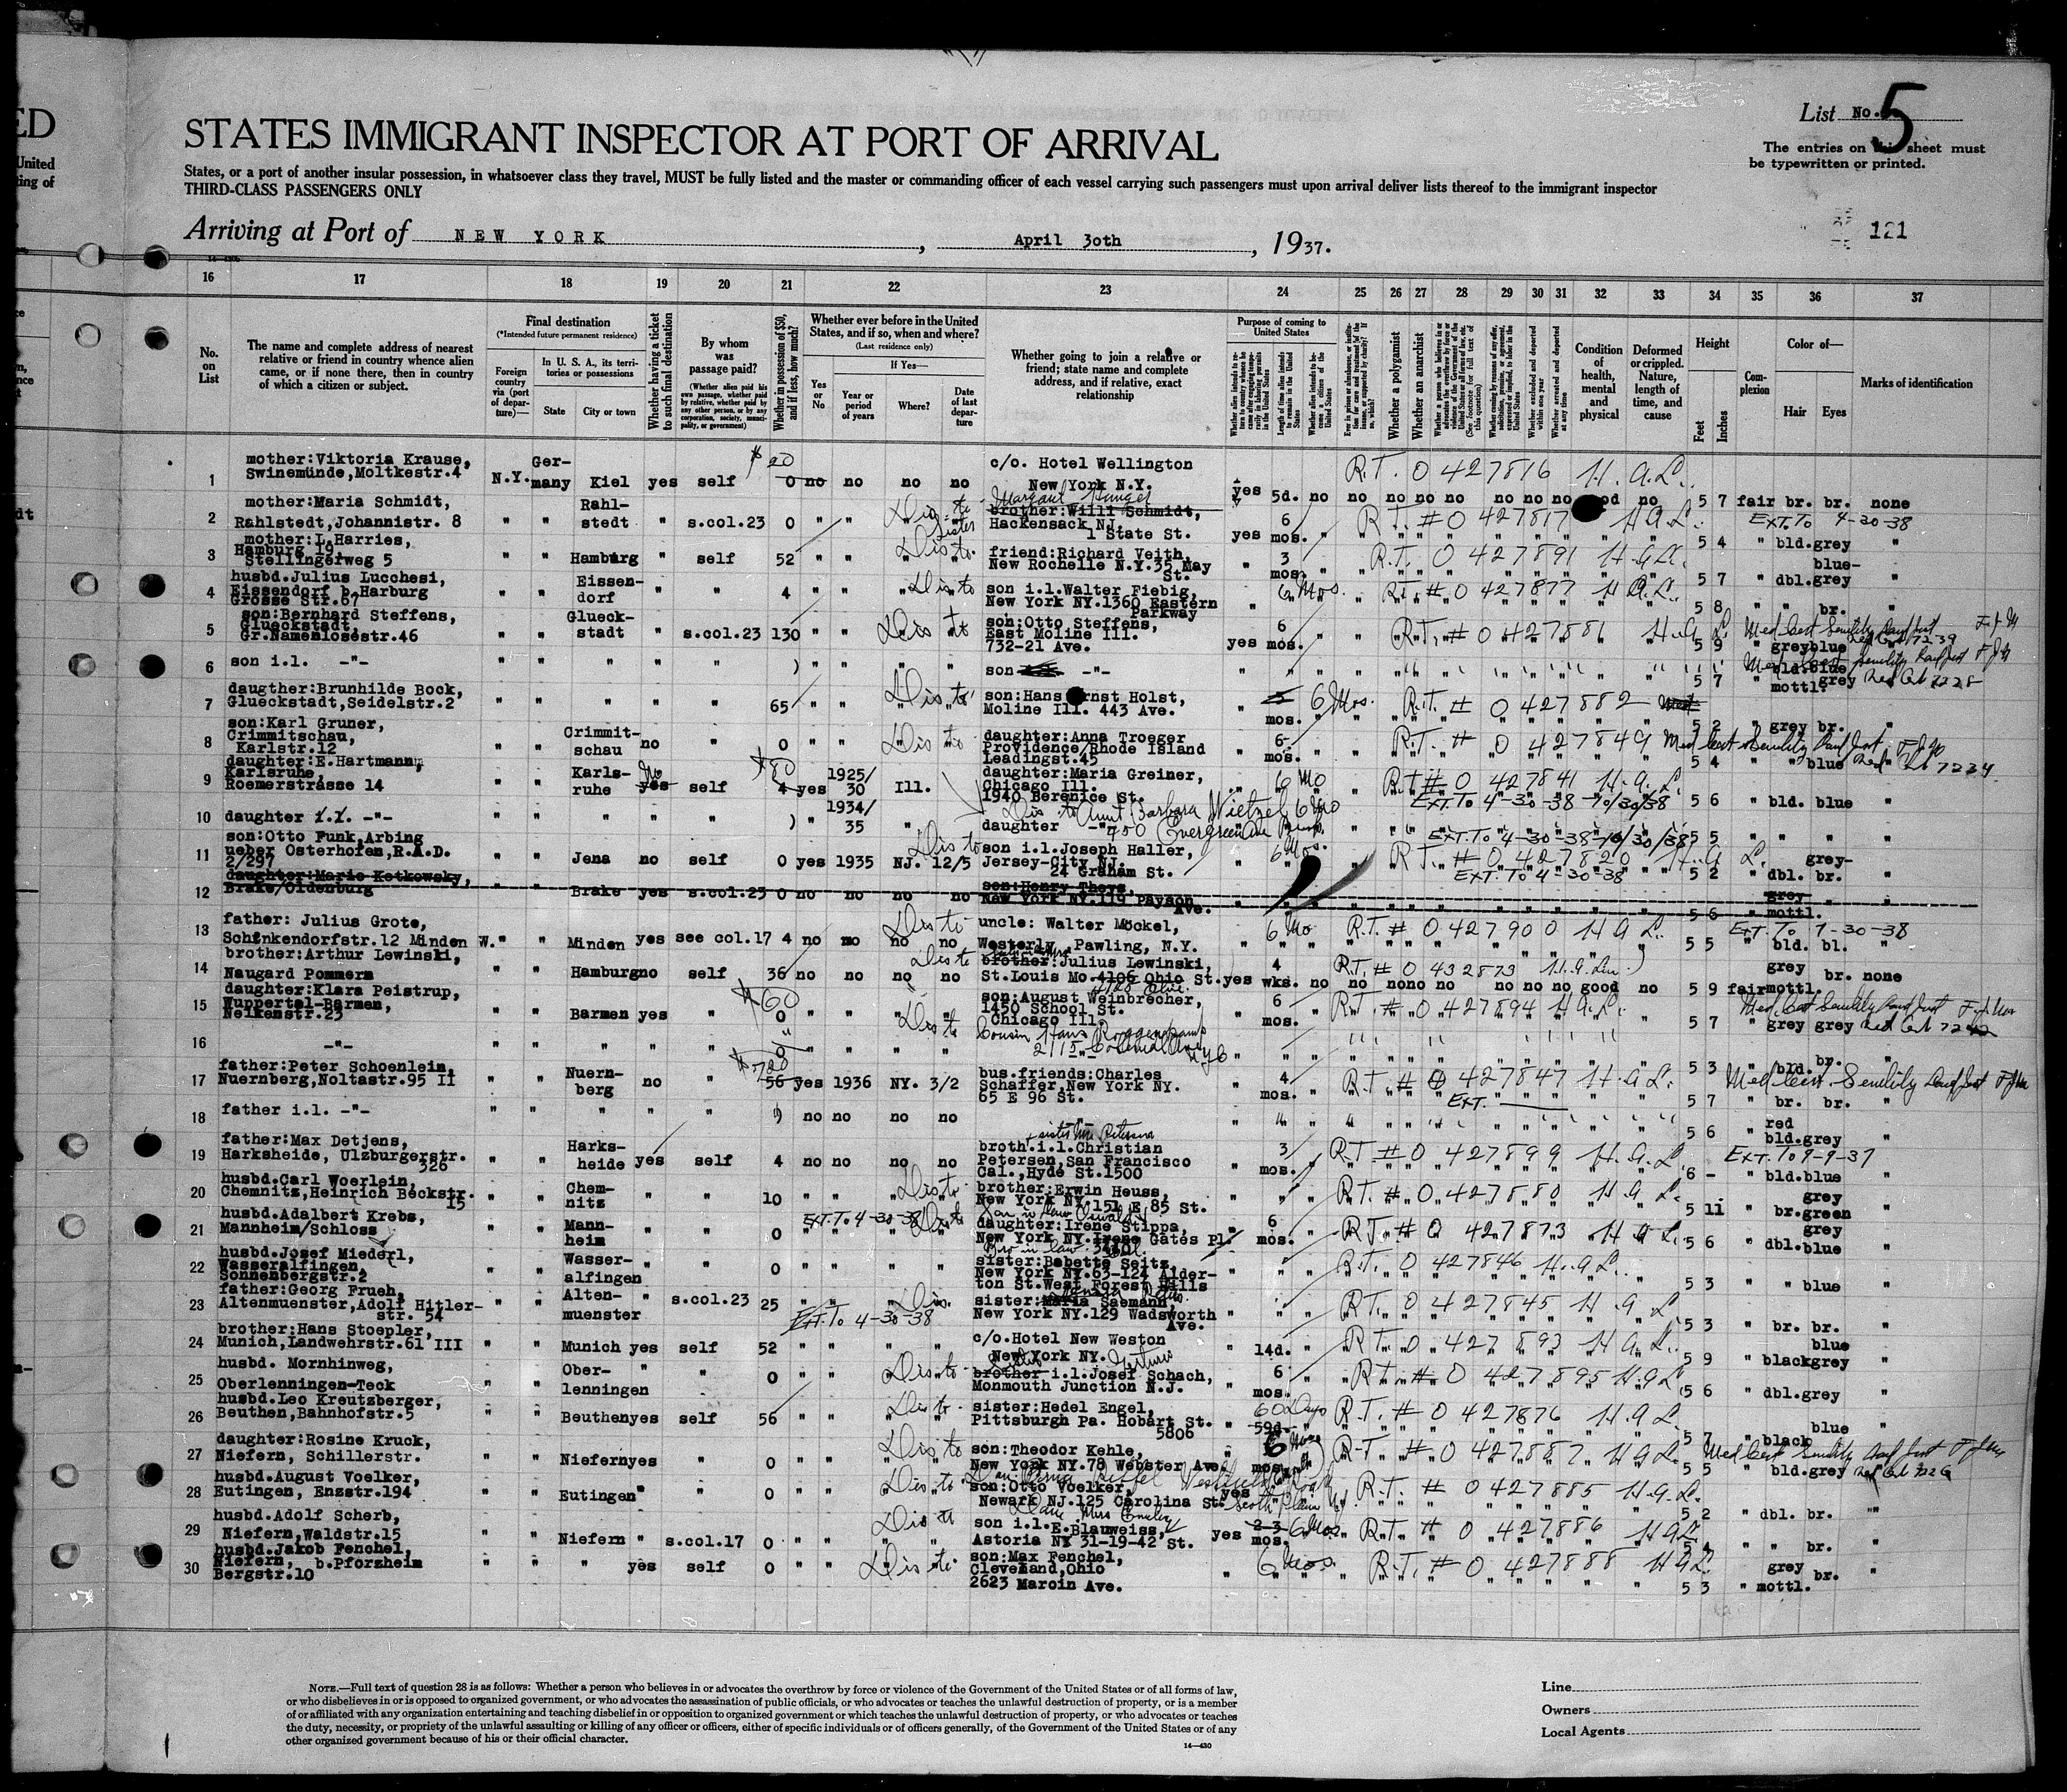 ED
United
ing of
List No. 5
STATES IMMIGRANT INSPECTOR AT PORT OF ARRIVAL
The entries on this sheet must
be typewritten or printed.
States, or a port of another insular possession, in whatsoever class they travel, MUST be fully listed and the master or commanding officer of each vessel carrying such passengers must upon arrival deliver lists thereof to the immigrant inspector
THIRD-CLASS PASSENGERS ONLY
Arriving at Port of NEW YORK, April 30th, 1937.
121
16 17 18 19 20 21 22 23 24 25 26 27 28 29 30 31 32 33 34 35 36 37
No. on List
The name and complete address of nearest relative or friend in country whence alien came, or if none there, then in country of which a citizen or subject.
Final destination
(*Intended future permanent residence)
Foreign country via (port of departure)—
In U. S. A., its territories or possessions
State
City or town
Whether having a ticket to such final destination
By whom was passage paid?
(Whether alien paid his own passage, whether paid by relative, whether paid by any other person, or by any corporation, society, municipality, or government)
Whether in possession of $50, and if less, how much?
Whether ever before in the United States, and if so, when and where?
(Last residence only)
Yes or No
If Yes—
Year or period of years
Where?
Date of last departure
Whether going to join a relative or friend; state name and complete address, and if relative, exact relationship
Purpose of coming to United States
Length of time alien intends to remain in the United States
Whether alien intends to become a citizen of the United States
Whether a polygamist
Whether an anarchist
Condition of health, mental and physical
Deformed or crippled. Nature, length of time, and cause
Height
Feet
Inches
Complexion
Color of—
Hair
Eyes
Marks of identification
1 mother:Viktoria Krause, Swinemünde,Moltkestr.4 N.Y. Germany Kiel yes self $20 0 no no no no c/o. Hotel Wellington New York N.Y. yes 5d. no no no no no no no no no R.T. 0 427816 H.A.L. 5 7 fair br. br. none
2 mother:Maria Schmidt, Rahlstedt,Johannistr. 8 " " Rahlstedt " s.col.23 0 " " Dis to brother:Willi Schmidt, Hackensack NJ. 1 State St. yes 6 mos. " R.T. # 0 427817 H.A.L. EXT. To 4-30-38 5 4 " bld.grey "
3 mother:L.Harries, Hamburg 19, Stellingerweg 5 " " Hamburg " self 52 " " Dis to friend:Richard Veith, New Rochelle N.Y.35 May St. " 3 mos. R.T. 0 427891 H.A.L. 5 7 " blue- dbl.grey "
4 husbd.Julius Lucchesi, Eissendorf b.Harburg Grosse Str.67 " " Eissendorf " " 4 " " Dis to son i.l.Walter Fiebig, New York NY.1360 Eastern Parkway " 6 Mos. R.T. # 0 427877 H.A.L. 5 8 " " br. "
5 son:Bernhard Steffens, Glueckstadt, Gr.Namenlosestr.46 " " Glueckstadt " s.col.23 130 " " Dis to son:Otto Steffens, East Moline Ill. 732-21 Ave. yes 6 mos. R.T. # 0 427881 H.A.L. Med Cert Senility 5 9 " greyblue "
6 son i.l. -"- " " " " " ) " " " " son -"- 5 7 " bld.blue
7 daugther:Brunhilde Bock, Glueckstadt,Seidelstr.2 " " " " " 65 " " Dis to son:Hans Ernst Holst, Moline Ill. 443 Ave. " 6 Mos. mos. R.T. # 0 427882 mottl. grey 5 2 " grey br. "
8 son:Karl Gruner, Crimmitschau, Karlstr.12 " " Crimmitschau no " 0 " " Dis to daughter:Anna Troeger Providence/Rhode Island Leadingst.45 " 6 mos. R.T. # 0 427849 Med Cert Senility 7234 5 4 " " blue "
9 daughter:E.Hartmann, Karlsruhe, Roemerstrasse 14 " " Karlsruhe No yes self 4 yes 1925/30 Ill. daughter:Maria Greiner, Chicago Ill. 1940 Berenice St. " 6 Mo R.T. # 0 427841 H.A.L. EXT. To 4-30-38 10/30/38 5 6 " bld. blue "
10 daughter i.l. -"- " " " ) " 1934/35 " Dis to Aunt Barbara daughter -"- 750 Evergreen Ave 6 Mo EXT. To 4-30-38 10/30/38 5 5 " " " "
11 son:Otto Funk,Arbing ueber Osterhofen,R.A.D. 2/297 " " Jena no self 0 yes 1935 NJ. 12/5 Dis to son i.l.Joseph Haller, Jersey-City NJ. 24 Graham St. 6 Mos. R.T. # 0 427820 H.A.L. EXT. To 4-30-38 5 2 " grey- dbl. br. "
12 daughter:Marie Kotkowsky, Brake/Oldenburg " " Brake yes s.col.23 0 no no no no son:Henry Theys, New York NY.119 Payson Ave. 5 6 " grey mottl. "
13 father: Julius Grote, Schenkendorfstr.12 Minden W. " " Minden yes see col.17 4 no no no no Dis to uncle: Walter Möckel, Westerly, Pawling, N.Y. " 6 Mo R.T. # 0 427900 H.A.L. EXT. To 7-30-38 5 5 " bld. bl. "
14 brother:Arthur Lewinski, Naugard Pommern " " Hamburg no self 36 no no no no Dis to brother:Julius Lewinski, St.Louis Mo.4106 Ohio St. yes 4 wks. no no no no no no no no good no R.T. # 0 432873 H.A.Lin. 5 9 fair grey mottl. br. none
15 daughter:Klara Peistrup, Wuppertal-Barmen, Nelkenstr.23 " " Barmen yes " $60 0 " " " Dis to son:August Weinbrecher, 1450 School St. Chicago Ill. " 6 mos. R.T. # 0 427894 H.A.L. Med. Cert Senility 5 7 " grey grey "
16 -"- " " " " " 0 " " " " Cousin Hans 2115 NYC 5 3 " bld. br. "
17 father:Peter Schoenlein, Nuernberg,Noltastr.95 II " " Nuernberg no " $720 56 yes 1936 NY. 3/2 bus.friends:Charles Schaffer,New York NY. 65 E 96 St. " 4 mos. R.T. # 0 427847 H.A.L. EXT. Med Cert. Senility 5 7 " br. br. "
18 father i.l. -"- " " " " " ) no no no no " 5 6 " red bld.grey "
19 father:Max Detjens, Harksheide, Ulzburgerstr. 326 " " Harksheide yes self 4 no no no no broth.i.l.Christian Petersen,San Francisco Cal.,Hyde St.1500 " 3 mos. R.T. # 0 427899 H.A.L. EXT. To 9-9-37 6 - " bld.blue "
20 husbd.Carl Woerlein, Chemnitz,Heinrich Beckstr. 15 " " Chemnitz " " 10 " " " Dis to brother:Erwin Heuss, New York NY.151 E 85 St. R.T. # 0 427880 H.A.L. 5 11 " grey br.green "
21 husbd.Adalbert Krebs, Mannheim/Schloss " " Mannheim " " 0 EXT. To 4-30-38 Dis to Son in law Oswald daughter:Irene Stippa, New York NY.Irene Gates Pl. 6 mos. R.T. # 0 427873 H.A.L. 5 6 " grey dbl.blue "
22 husbd.Josef Miederl, Wasseralfingen, Sonnenbergstr.2 " " Wasseralfingen " " 0 " " " " Bro in law sister:Babette Seitz, New York NY.63-124 Alderton St.West Forest Hills R.T. 0 427846 H.A.L. 5 3 " " blue "
23 father:Georg Frueh, Altenmuenster,Adolf Hitlerstr. 54 " " Altenmuenster " s.col.23 25 " " " Dis. EXT. To 4-30-38 sister:Maria Saemann, New York NY.129 Wadsworth Ave. " R.T. 0 427845 H.A.L. 5 3 " br. br. "
24 brother:Hans Stoepler, Munich,Landwehrstr.61 III " " Munich yes self 52 " " " " c/o.Hotel New Weston New York NY. " 14d. R.T. 0 427893 H.A.L. 5 9 " blue blackgrey "
25 husbd. Mornhinweg, Oberlenningen-Teck " " Oberlenningen " " 0 " " Dis to brother i.l.Josef Schach, Monmouth Junction N.J. 6 mos. R.T. # 0 427895 H.A.L. 5 6 " dbl.grey "
26 husbd.Leo Kreutzberger, Beuthen,Bahnhofstr.5 " " Beuthen yes self 56 " " Dis to sister:Hedel Engel, Pittsburgh Pa. Hobart St. 5806 " 60 Days 59d. R.T. # 0 427876 H.A.L. 5 7 " blue black "
27 daughter:Rosine Kruck, Niefern, Schillerstr. " " Niefern yes " 0 " " Dis to son:Theodor Kehle, New York NY.78 Webster Ave. 6 Mos mos. R.T. # 0 427887 H.A.L. Med Cert Senility 5 5 " bld.grey
28 husbd.August Voelker, Eutingen, Enzstr.194 " " Eutingen " " 0 " " Dis to son:Otto Voelker, Newark NJ.125 Carolina St. yes R.T. # 0 427885 H.A.L. 5 2 " dbl. br. "
29 husbd.Adolf Scherb, Niefern,Waldstr.15 " " Niefern " s.col.17 0 " " Dis to son i.l.E.Blauweiss, Astoria NY 31-19-42 St. yes 2-3 mos. 6 Mos. R.T. # 0 427886 H.A.L. 5 4 " " br. "
30 husbd.Jakob Fenchel, Niefern, b.Pforzheim Bergstr.10 " " " yes self 0 " " Dis to son:Max Fenchel, Cleveland,Ohio 2623 Marcin Ave. " 6 Mos. R.T. # 0 427888 H.A.L. 5 3 " grey mottl. br. "
NOTE.—Full text of question 28 is as follows: Whether a person who believes in or advocates the overthrow by force or violence of the Government of the United States or of all forms of law,
or who disbelieves in or is opposed to organized government, or who advocates the assassination of public officials, or who advocates or teaches the unlawful destruction of property, or is a member
of or affiliated with any organization entertaining and teaching disbelief in or opposition to organized government or which teaches the unlawful destruction of property, or who advocates or teaches
the duty, necessity, or propriety of the unlawful assaulting or killing of any officer or officers, either of specific individuals or of officers generally, of the Government of the United States or of any
other organized government because of his or their official character.
14—430
Line
Owners
Local Agents